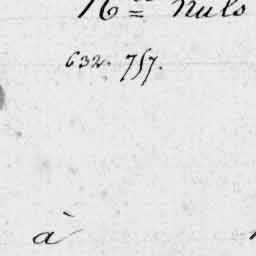 N.os nuls
632. 757.
à